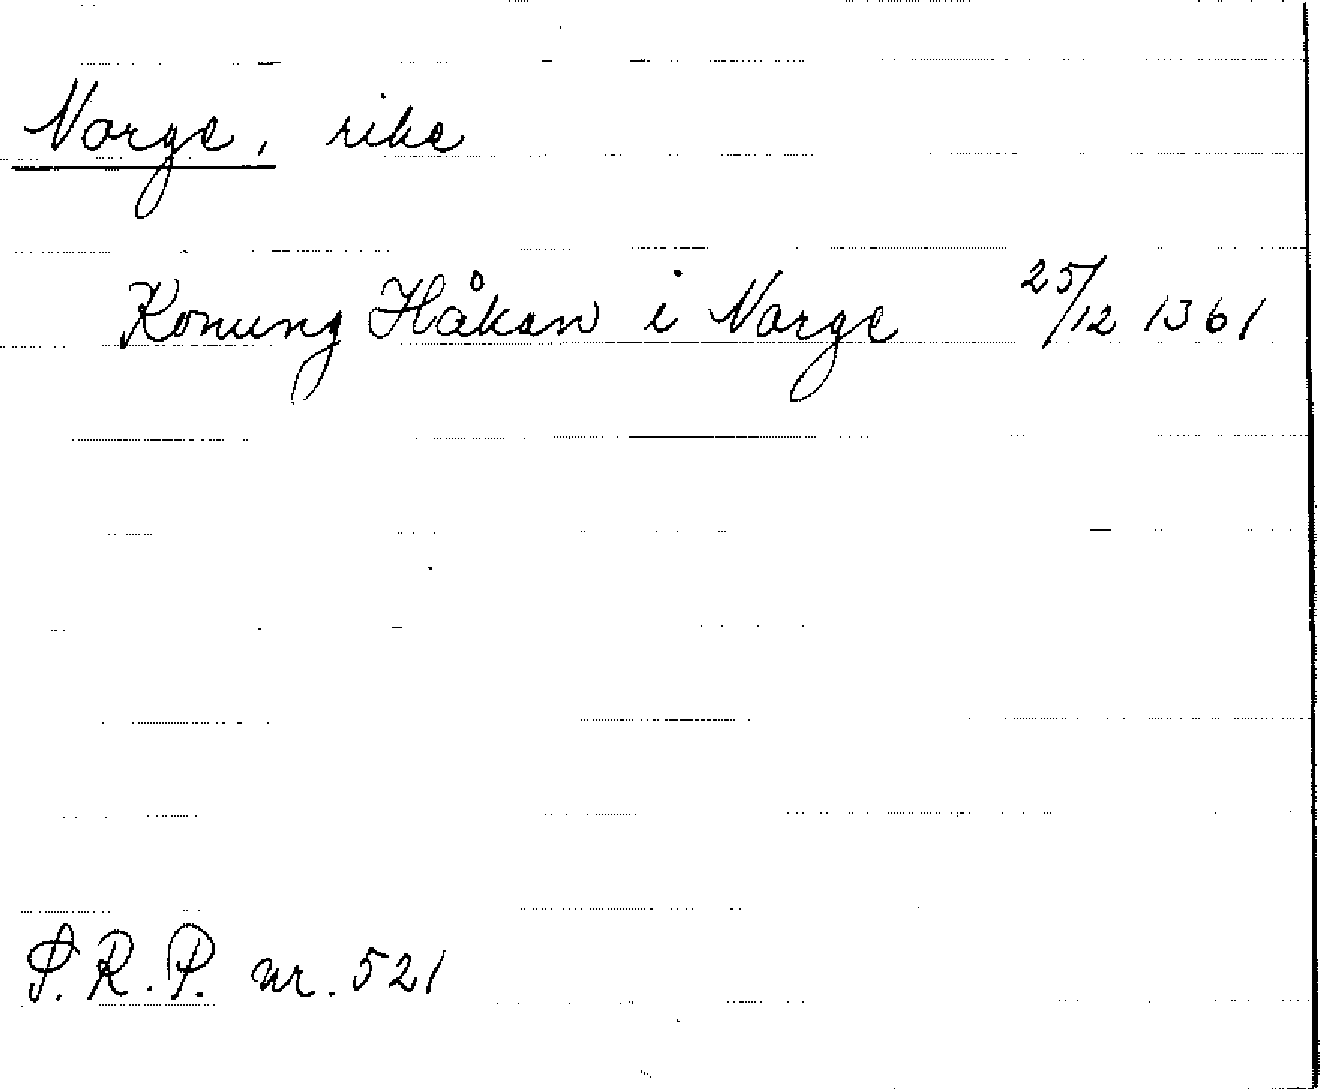 Norge, rike
Konung Håkan i Norge 25/12 1361
S.R.P. nr. 521